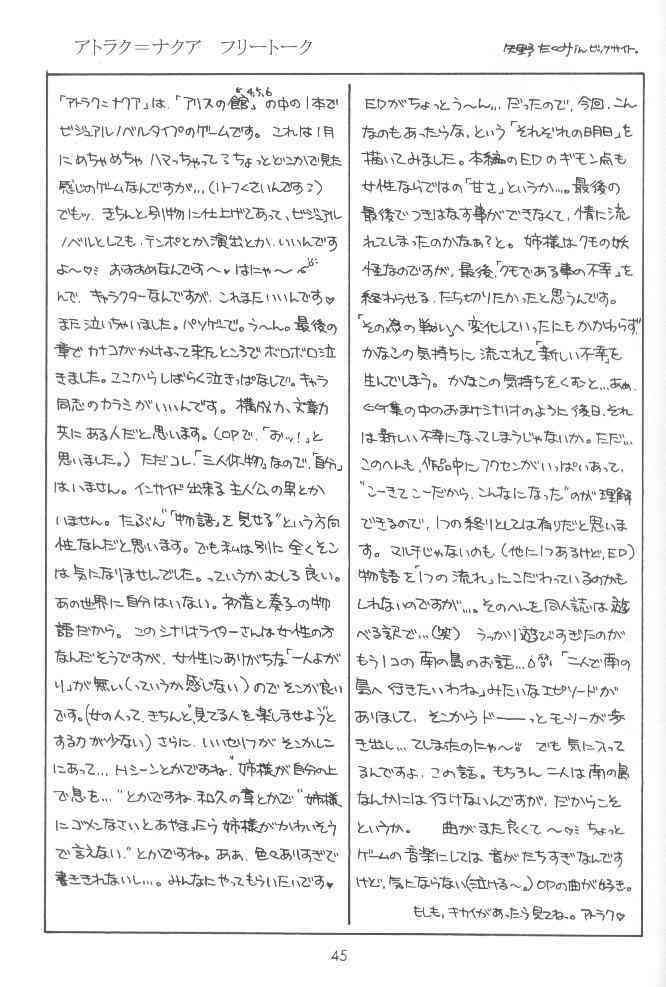 アトラク＝ナクア　フリートーク
矢野たくみinビッグサイト。
「アトラク＝ナクア」は、「アリスの館4,5,6」の中の1本で
ビジュアルノベルタイプのゲームです。これは1月
にめちゃめちゃハマっちゃって…ちょっとどこかで見た
感じのゲームなんですが…。
でもッ、きちんと別物に仕上げてあって、ビジュアル
ノベルとしても、テンポとか演出とか、いいんです
よ〜♡ おすすめなんです〜♥はにゃ〜
んで、キャラクターなんですが、これまたいいんです♡
また泣いちゃいました。パソゲーで。う〜ん。最後の
章でカナコがかけよって来たところでボロボロ泣
きました。ここからしばらく泣きっぱなしで。キャラ
同志のカラミがいいんです。構成力、文章力
共にある人だと思います。（OPで、「おッ！」と
思いました。）ただコレ、「三人体物」なので、「自分」
はいません。インサイド出来る主人公の男とか
いません。たぶん“「物語」を見せる”という方向
性なんだと思います。でも私は別に全くそこ
は気になりませんでした。っていうかむしろ良い。
あの世界に自分はいない。初音と奏子の物
語だから。このシナリオライターさんは女性の方
なんだそうですが、女性にありがちな「一人よが
り」が無い（っていうか感じない）のでそこが良い
です。（女の人って、きちんと“見てる人を楽しませよう”と
する力が少ない）さらに、いいセリフがそこかしこ
にあって…、Hシーンとかですね、“姉様が自分の上
で息を…”とかですね、和久の章とかで“姉様
にゴメンなさいとあやまったら姉様がかわいそう
で言えない。”とかですね。ああ、色々ありすぎて
書ききれないし…。みんなにやってもらいたいです♥
EDがちょっとう〜ん…だったので、今回、こん
なのもあったらな、という「それぞれの明日」を
描いてみました。本編のEDのギモン点も
女性ならではの「甘さ」というか…。最後の
最後でつきはなす事ができなくて、情に流
れてしまったのかなぁ？と。姉様はクモの妖
怪なのですが、最後、「クモである事の不幸」を
終わらせる、たち切りたかったと思うんです。
「その為の戦い」へ変化していったにもかかわらず、
かなこの気持ちに流されて「新しい不幸」を
生んでしまう。かなこの気持ちをくむと…あぁ。
CG集の中のおまけシナリオのように後日、それ
は新しい不幸になってしまうじゃないか。ただ…
このへんも、作品中にフクセンがいっぱいあって、
“こーきてこーだから、こんなになった”のが理解
できるので、1つの終りとしては有りだと思いま
す。マルチじゃないのも（他に1つあるけど、ED）
物語を「1つの流れ」にこだわっているのかも
しれないのですが…。そのへんを同人誌は遊
べる訳で…（笑）　うっかり遊びすぎたのが
もう1コの南の島のお話…。「二人で南の
島へ行きたいわね」みたいなエピソードが
ありまして、そこからドーーっとモーリーが歩
き出し…てしまったのにゃ〜。でも気に入って
るんですよ、この話。もちろん二人は南の島
なんかには行けないんですが、だからこそ
というか。　曲がまた良くて〜♡ ちょっと
ゲームの音楽にしては音がたちすぎなんです
けど、気にならない（泣ける〜。）OPの曲が好き。
もしも、キカイがあったら見てね。アトラク♡
45